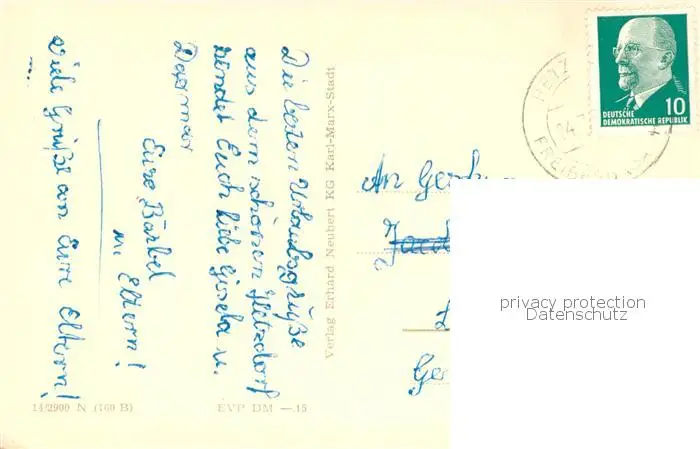 Die besten Urlaubsgrüße
aus dem schönen Hetzdorf
sendet Euch liebe Gisela u.
Dagmar
Eure Bärbel
m. Eltern!
Viele Grüße an Eure Eltern!
Verlag Erhard Neubert KG Karl-Marx-Stadt
14/2900 N (160 B)
EVP DM —.15
10
DEUTSCHE
DEMOKRATISCHE REPUBLIK
HETZ
24.
FREIBERG
An
privacy protection
Datenschutz